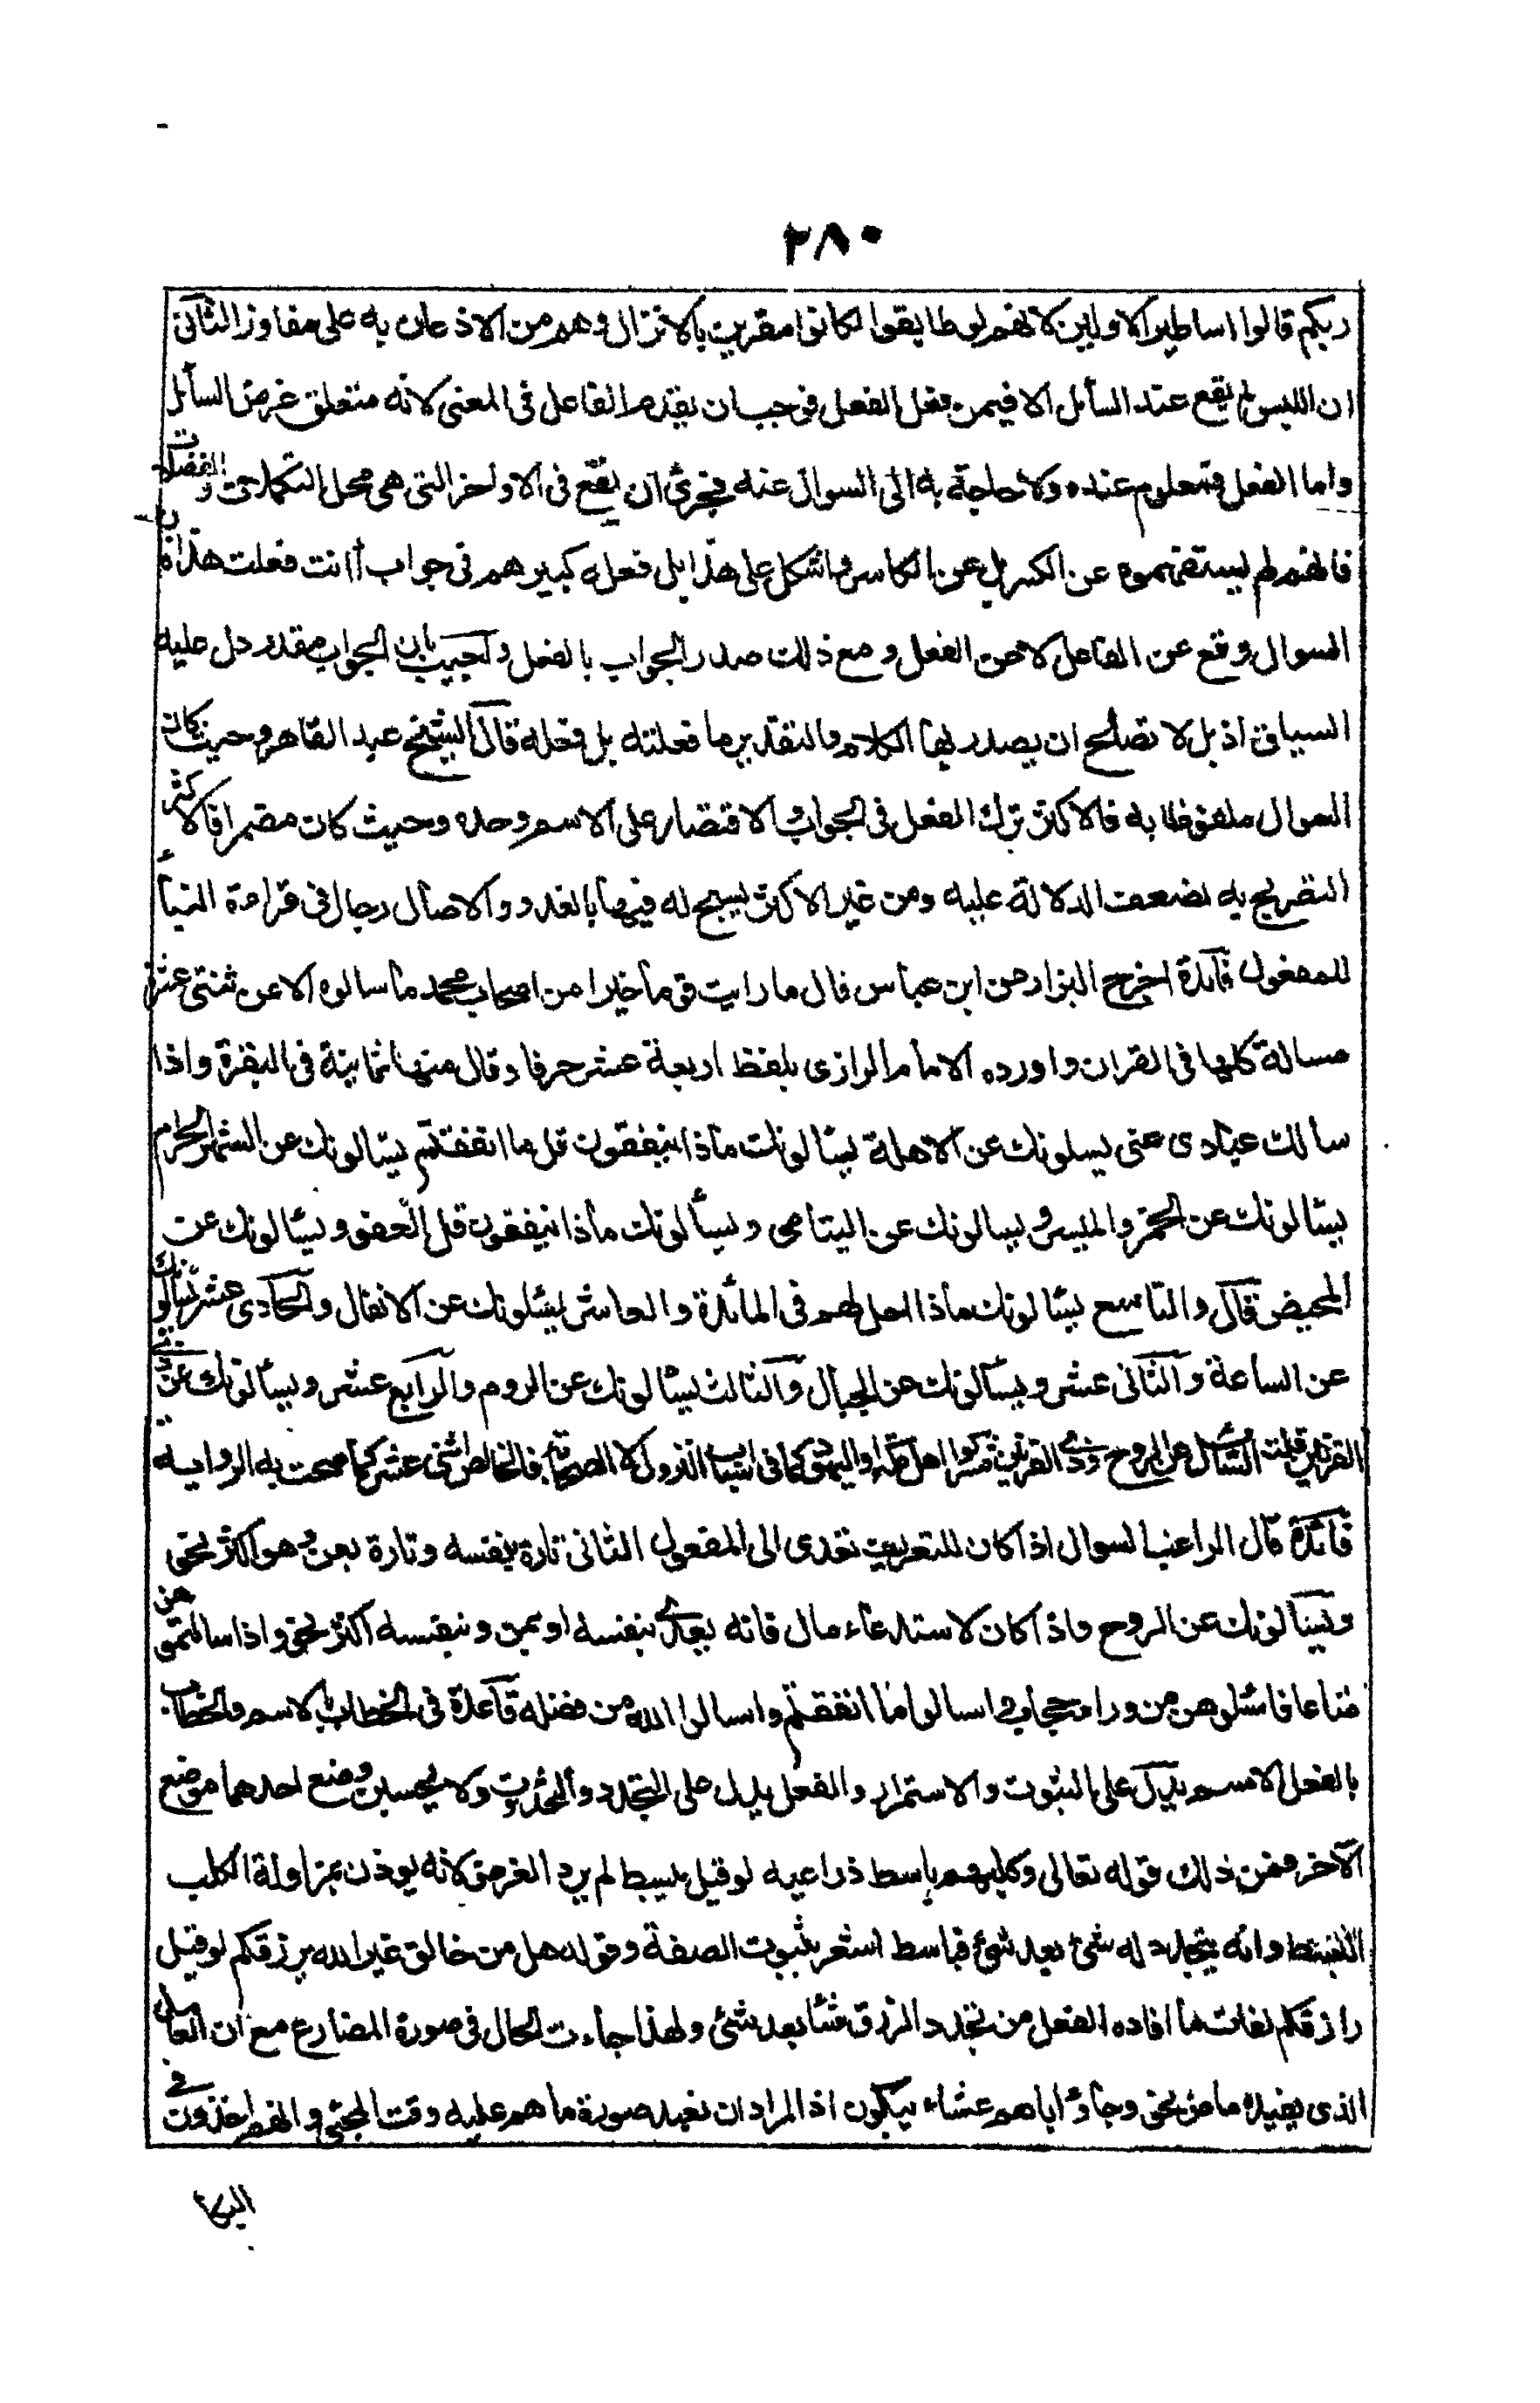 ٢٨٠
ربكم قالوا اساطير الاولين لانهم لو طابقوا لكانوا مقرين بالانزال وهم من الاذعان به على مفاوز الثانى
ان اللبس لم يقع عند السائل الا فيمن فعل الفعل فوجب ان يقدم الفاعل فى المعنى لانه متعلق غرض السائل
واما الفعل فمعلوم عنده ولا حاجة به الى السوال عنه فحرى ان يقع فى الاواخر التى هى محل التكملات والفضلات
فانهم لم يستفهموه عن الكسر بل عن الكاسر واشكل على هذا بل فعله كبيرهم فى جواب أانت فعلت هذا فان
السوال وقع عن الفاعل لا عن الفعل و مع ذلك صدر الجواب بالفعل واجيب بان الجواب مقدر دل عليه
السياق اذ بل لا تصلح ان يصدر بها الكلام والتقدير ما فعلته بل فعله قال الشيخ عبد القاهر وحيث كان
السوال ملفوظا به فالاكثر ترك الفعل فى الجواب والاقتصار على الاسم وحده وحيث كان مضمرا فالاكثر
التصريح به لضعف الدلالة عليه ومن غير الاكثر يسبح له فيها بالغدو والاصال رجال فى قراءة البناء
للمفعول فائدة اخرج البزار عن ابن عباس قال ما رايت قوما خيرا من اصحاب محمد ما سالوه الا عن ثنتى عشرة
مسالة كلها فى القران واورده الامام الرازى بلفظ اربعة عشر حرفا وقال منها ثمانية فى البقرة واذا
سالك عبادى عنى يسلونك عن الاهلة يسالونك ماذا ينفقون قل ما انفقتم يسالونك عن الشهر الحرام
يسالونك عن الخمر والميسر ويسالونك عن اليتامى ويسألونك ماذا ينفقون قل العفو ويسالونك عن
المحيض قال والتاسع يسالونك ماذا احل لهم فى المائدة والعاشر يسئلونك عن الانفال والحادى عشر يسالونك
عن الساعة والثانى عشر ويسألونك عن الجبال والثالث يسالونك عن الروم والرابع عشر ويسألونك عن ذى
القرنين قلت السائل عن الروح وذى القرنين مشركوا اهل مكة او اليهود كما فى اسباب النزول لا الصحابة فالخالص اثنى عشر كما صحت به الرواية
فائدة قال الراغب السوال اذا كان للتعريف تعدى الى المفعول الثانى تارة بنفسه وتارة بعن وهو اكثر نحو
ويسألونك عن الروح واذا كان لاستدعاء مال فانه يعدى بنفسه او بمن وبنفسه اكثر نحو واذا سالتموهن
متاعا فاسئلوهن من وراء حجاب واسالوا ما انفقتم واسالوا الله من فضله قاعدة فى الخطاب بالاسم والخطاب
بالفعل الاسم يدل على الثبوت والاستمرار والفعل يدل على التجدد والحدوث ولا يحسن وضع احدهما موضع
الآخر فمن ذلك قوله تعالى وكلبهم باسط ذراعيه لو قيل يبسط لم يرد الغرض لانه يوذن بمزاولة الكلب
البسط وانه يتجدد له شئ بعد شئ فباسط اشعر بثبوت الصفة وقوله هل من خالق غير الله يرزقكم لو قيل
رازقكم لفات ما افاده الفعل من تجدد الرزق شئا بعد شئ ولهذا جاءت الحال فى صورة المضارع مع ان العامل
الذى يفيده ماض نحو وجاؤ اباهم عشاء يبكون اذ المراد ان يفيد صورة ما هم عليه وقت المجئ وانهم اخذون فى
البكا